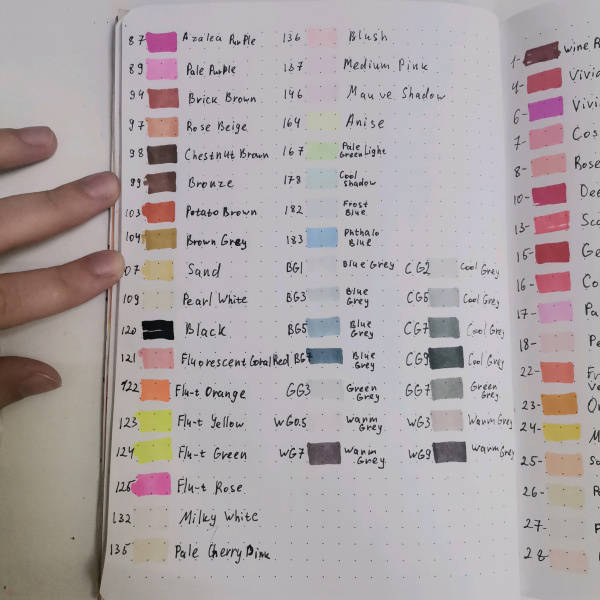 87 Azalea Purple
89 Pale Purple
94 Brick Brown
97 Rose Beige
98 Chestnut Brown
99 Bronze
103 Potato Brown
104 Brown Grey
07 Sand
109 Pearl White
120 Black
121 Fluorescent Coral Red
122 Flu-t Orange
123 Flu-t Yellow
124 Flu-t Green
125 Flu-t Rose
132 Milky White
135 Pale Cherry Pink
136 Blush
137 Medium Pink
146 Mauve Shadow
164 Anise
167 Pale
Green Light
178 Cool
Shadow
182 Frost
Blue
183 Phthalo
Blue
BG1 Blue Grey
BG3 Blue
Grey
BG5 Blue
Grey
BG7 Blue
Grey
GG3 Green
Grey
WG0.5 Warm
Grey
WG7 Warm
Grey
CG2 Cool Grey
CG5 Cool Grey
CG7 Cool Grey
CG9 Cool Grey
GG7 Green
Grey
WG3 Warm Grey
WG9 Warm Grey
1- Wine R
4- Vivi
6- Vivi
7- Cos
8- Rose
10- Dee
13- Sca
15- Ge
16- Co
17- Pa
18- Pe
22- Fr
23- Or
24- M
25- Sa
26- Pa
27- P
28-